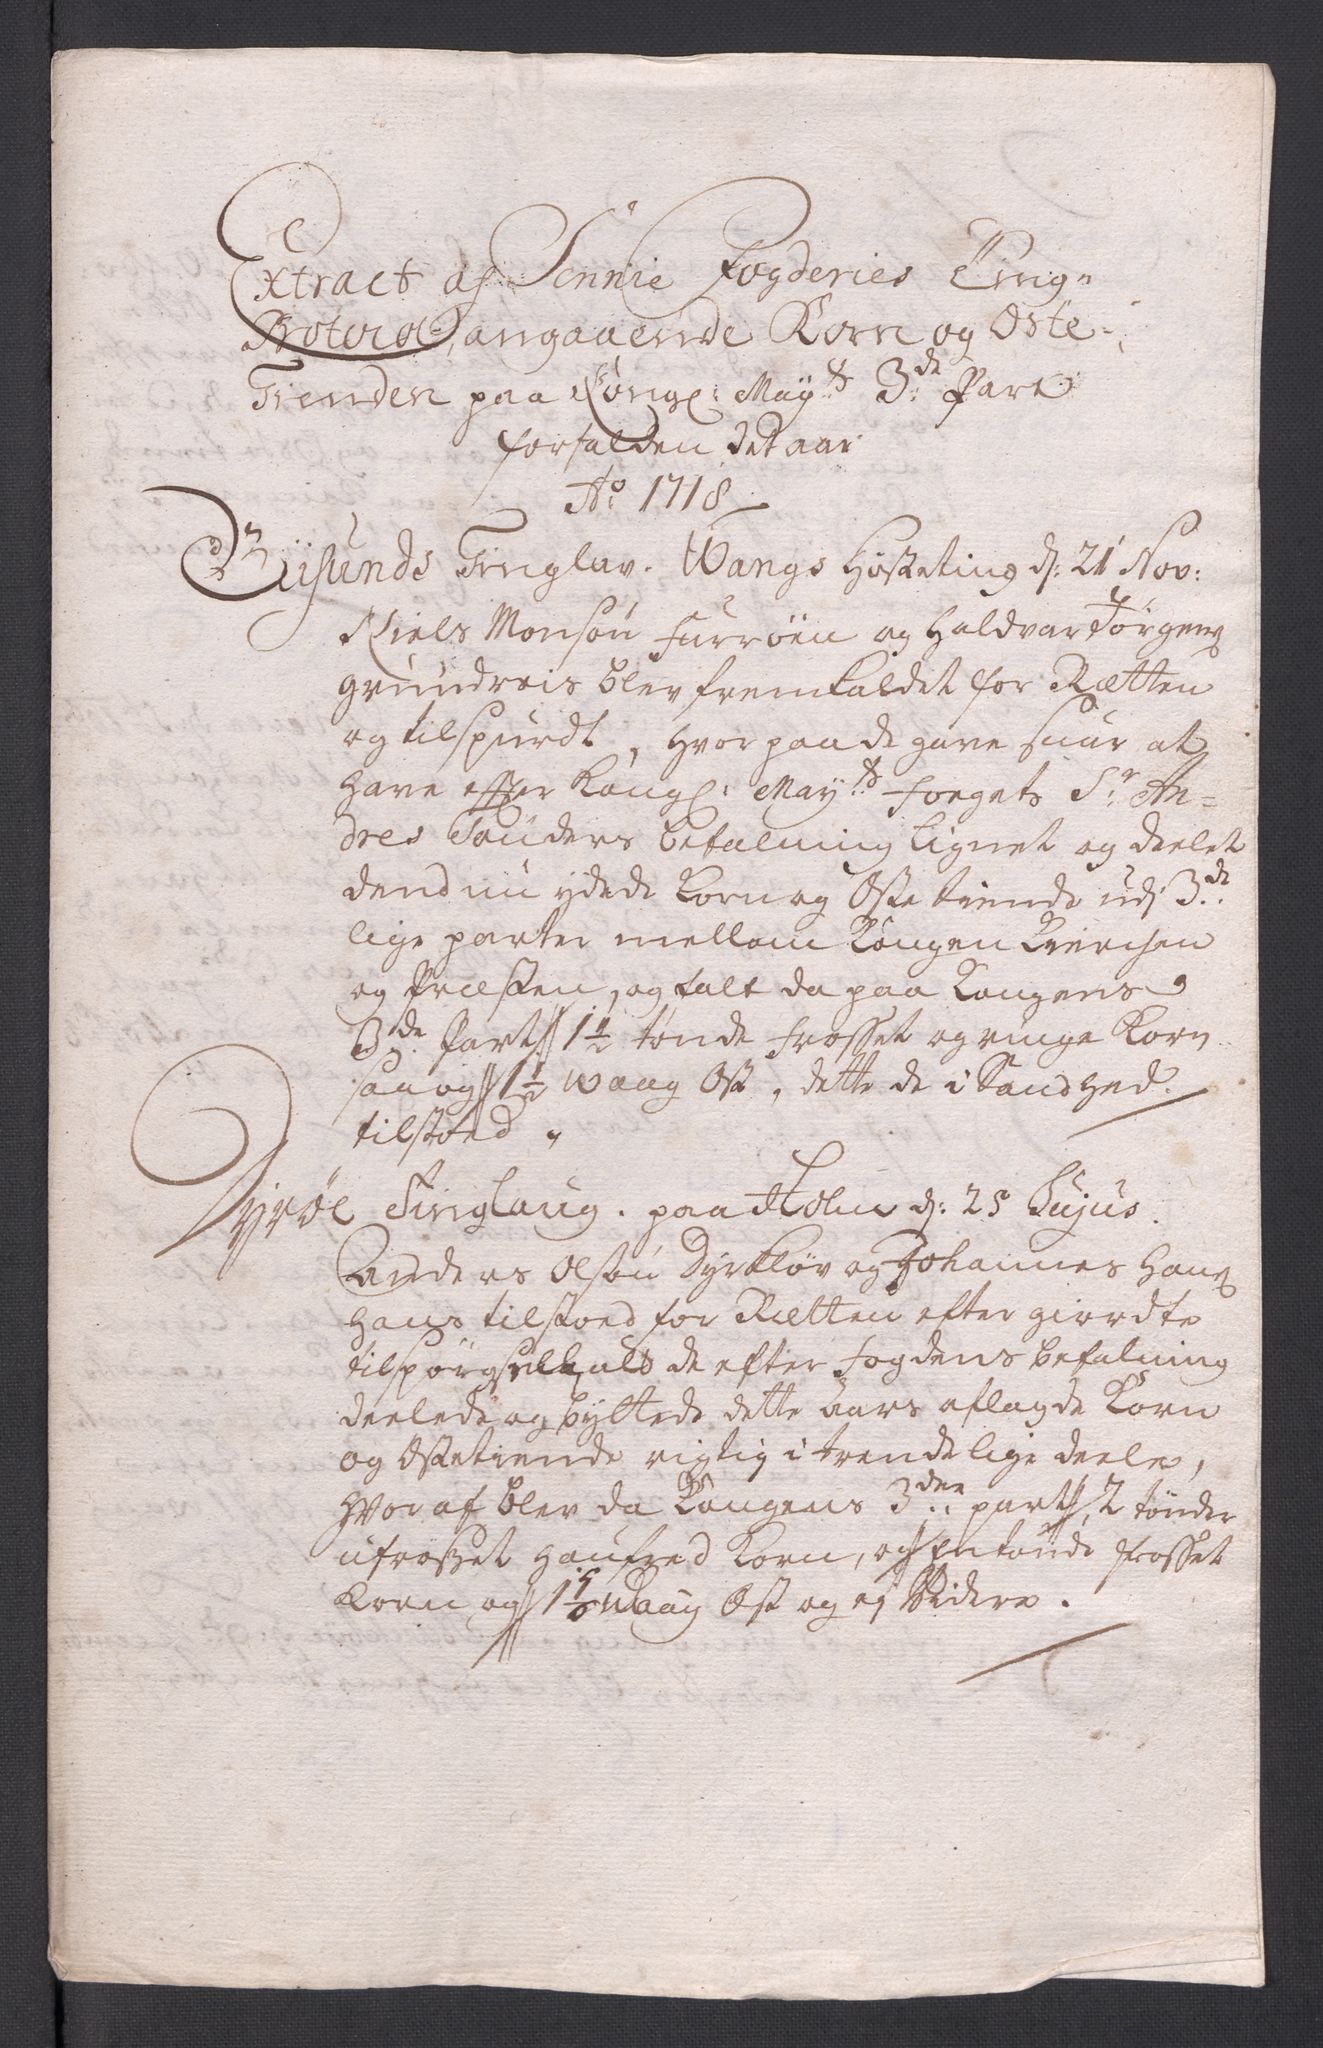 Extract af Sennie Fogderies Ting-
Protocol, angaaende Korn og Oste-
Tienden paa Kongl: Mayts 3de Part
forfalden det aar
Ao 1718
Gisunds Tinglav. Wangs Høsteting d: 21 Nov:
Niels Monsøn Furrøen og Haldvar Jørgens
grundreis blev fremkaldet for Rætten
og tilspurdt, hvorpaa de gave suar at
have efter Kongl: Mayts Foegets Sr An-
dres Tønders befalning lignet og deelet
dend nu ydede Korn og Oste tiende udj 3de
lige parter mellom Kongen Kierchen
og Præsten, og falt da paa Kongens
3de Part 1 1/2 tønde frosset og ringe Korn
saa og 1 1/2 Waag Ost, dette de i Sandhed
tilstoed
Gyrøe Tinglaug. paa Holm d: 25 hujus.
Anders Olsøn Dyrkløv og Johannes Hans
Hans tilstoed for Rætten efter giordte
tilspørgsell, at de efter Fogdens befalning
deelede og byttede dette aars aflagde Korn
og Ostetiende rigtig i trende lige deele,
hvoraf blev da Kongens 3den part, 2 tønder
ufrosset haufred Korn, og En tønde frosset
Korn og Waag Ost og ej Videre.